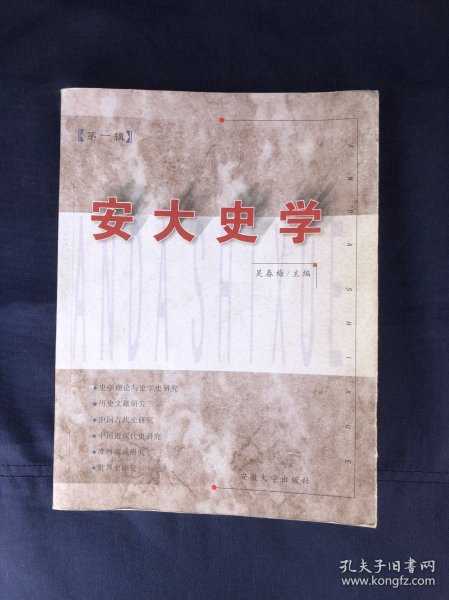 【第一辑】
安大史学
吴春梅/主编
AN DA SHI XUE
ANDA SHI XUE
◆史学理论与史学史研究
◆历史文献研究
◆中国古代史研究
◆中国近现代史研究
◆淮河流域研究
◆世界史研究
安徽大学出版社
孔夫子旧书网
www.kongfz.com